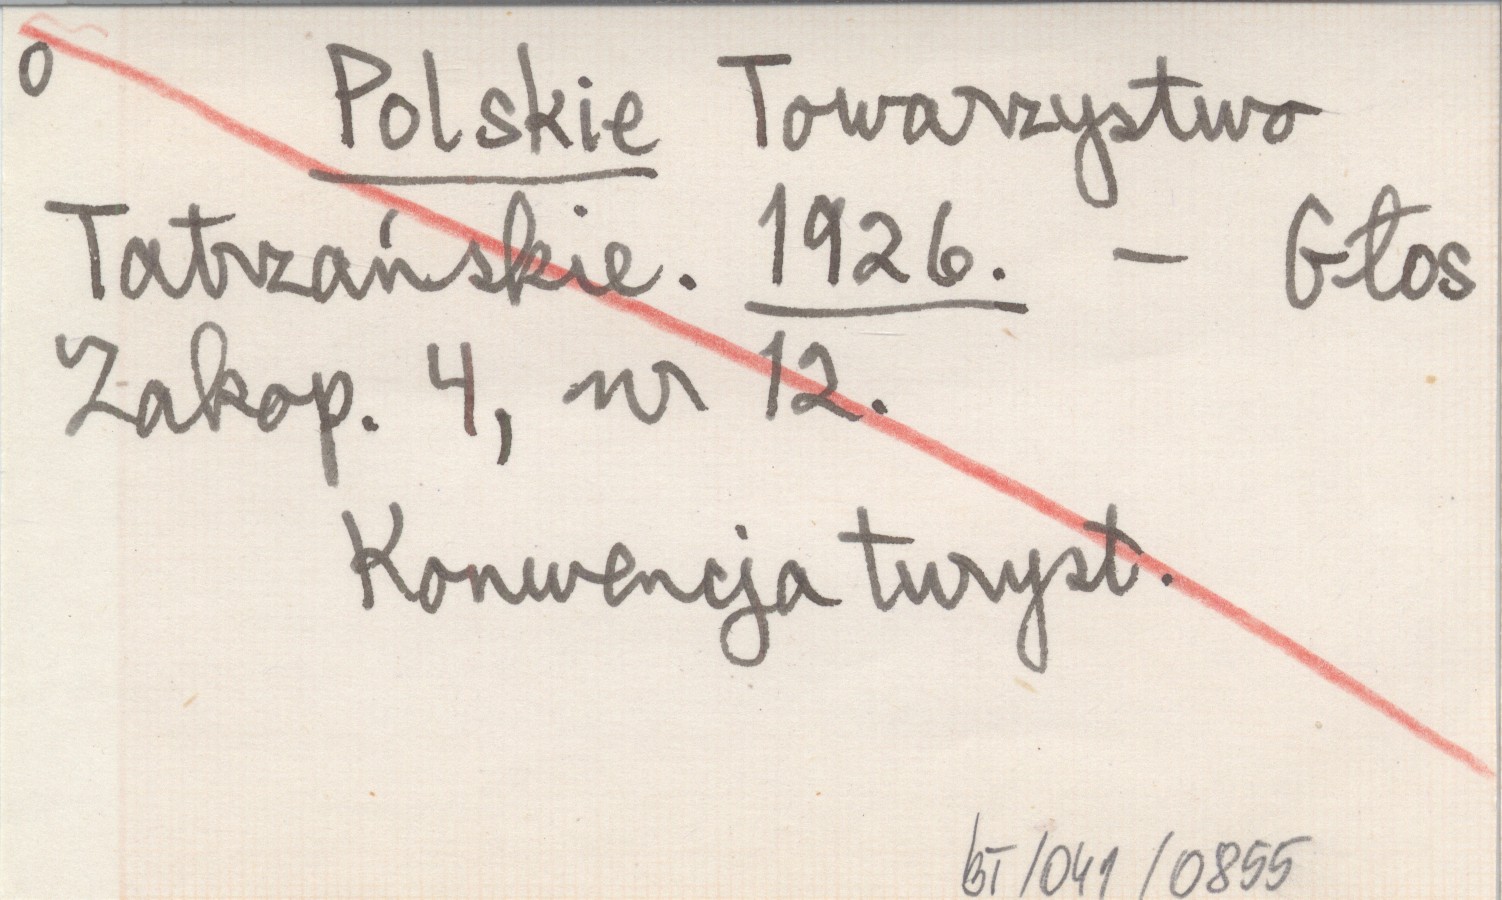 0
Polskie Towarzystwo
Tatrzańskie. 1926. – Głos
Zakop. 4, nr 12.
Konwencja turyst.
BT/041/0855